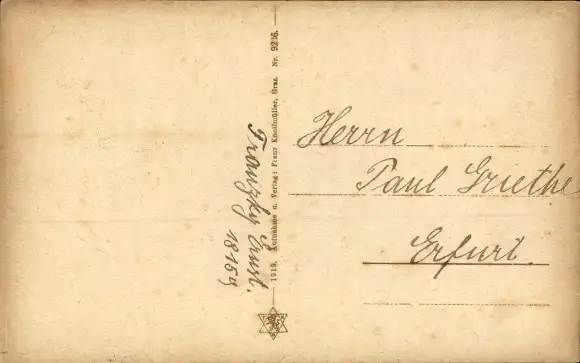 1919. Aufnahme u. Verlag: Franz Knollmüller, Graz. Nr. 9236.
Franzky Ernst.
18159
Herrn
Paul Griethe
Erfurt.